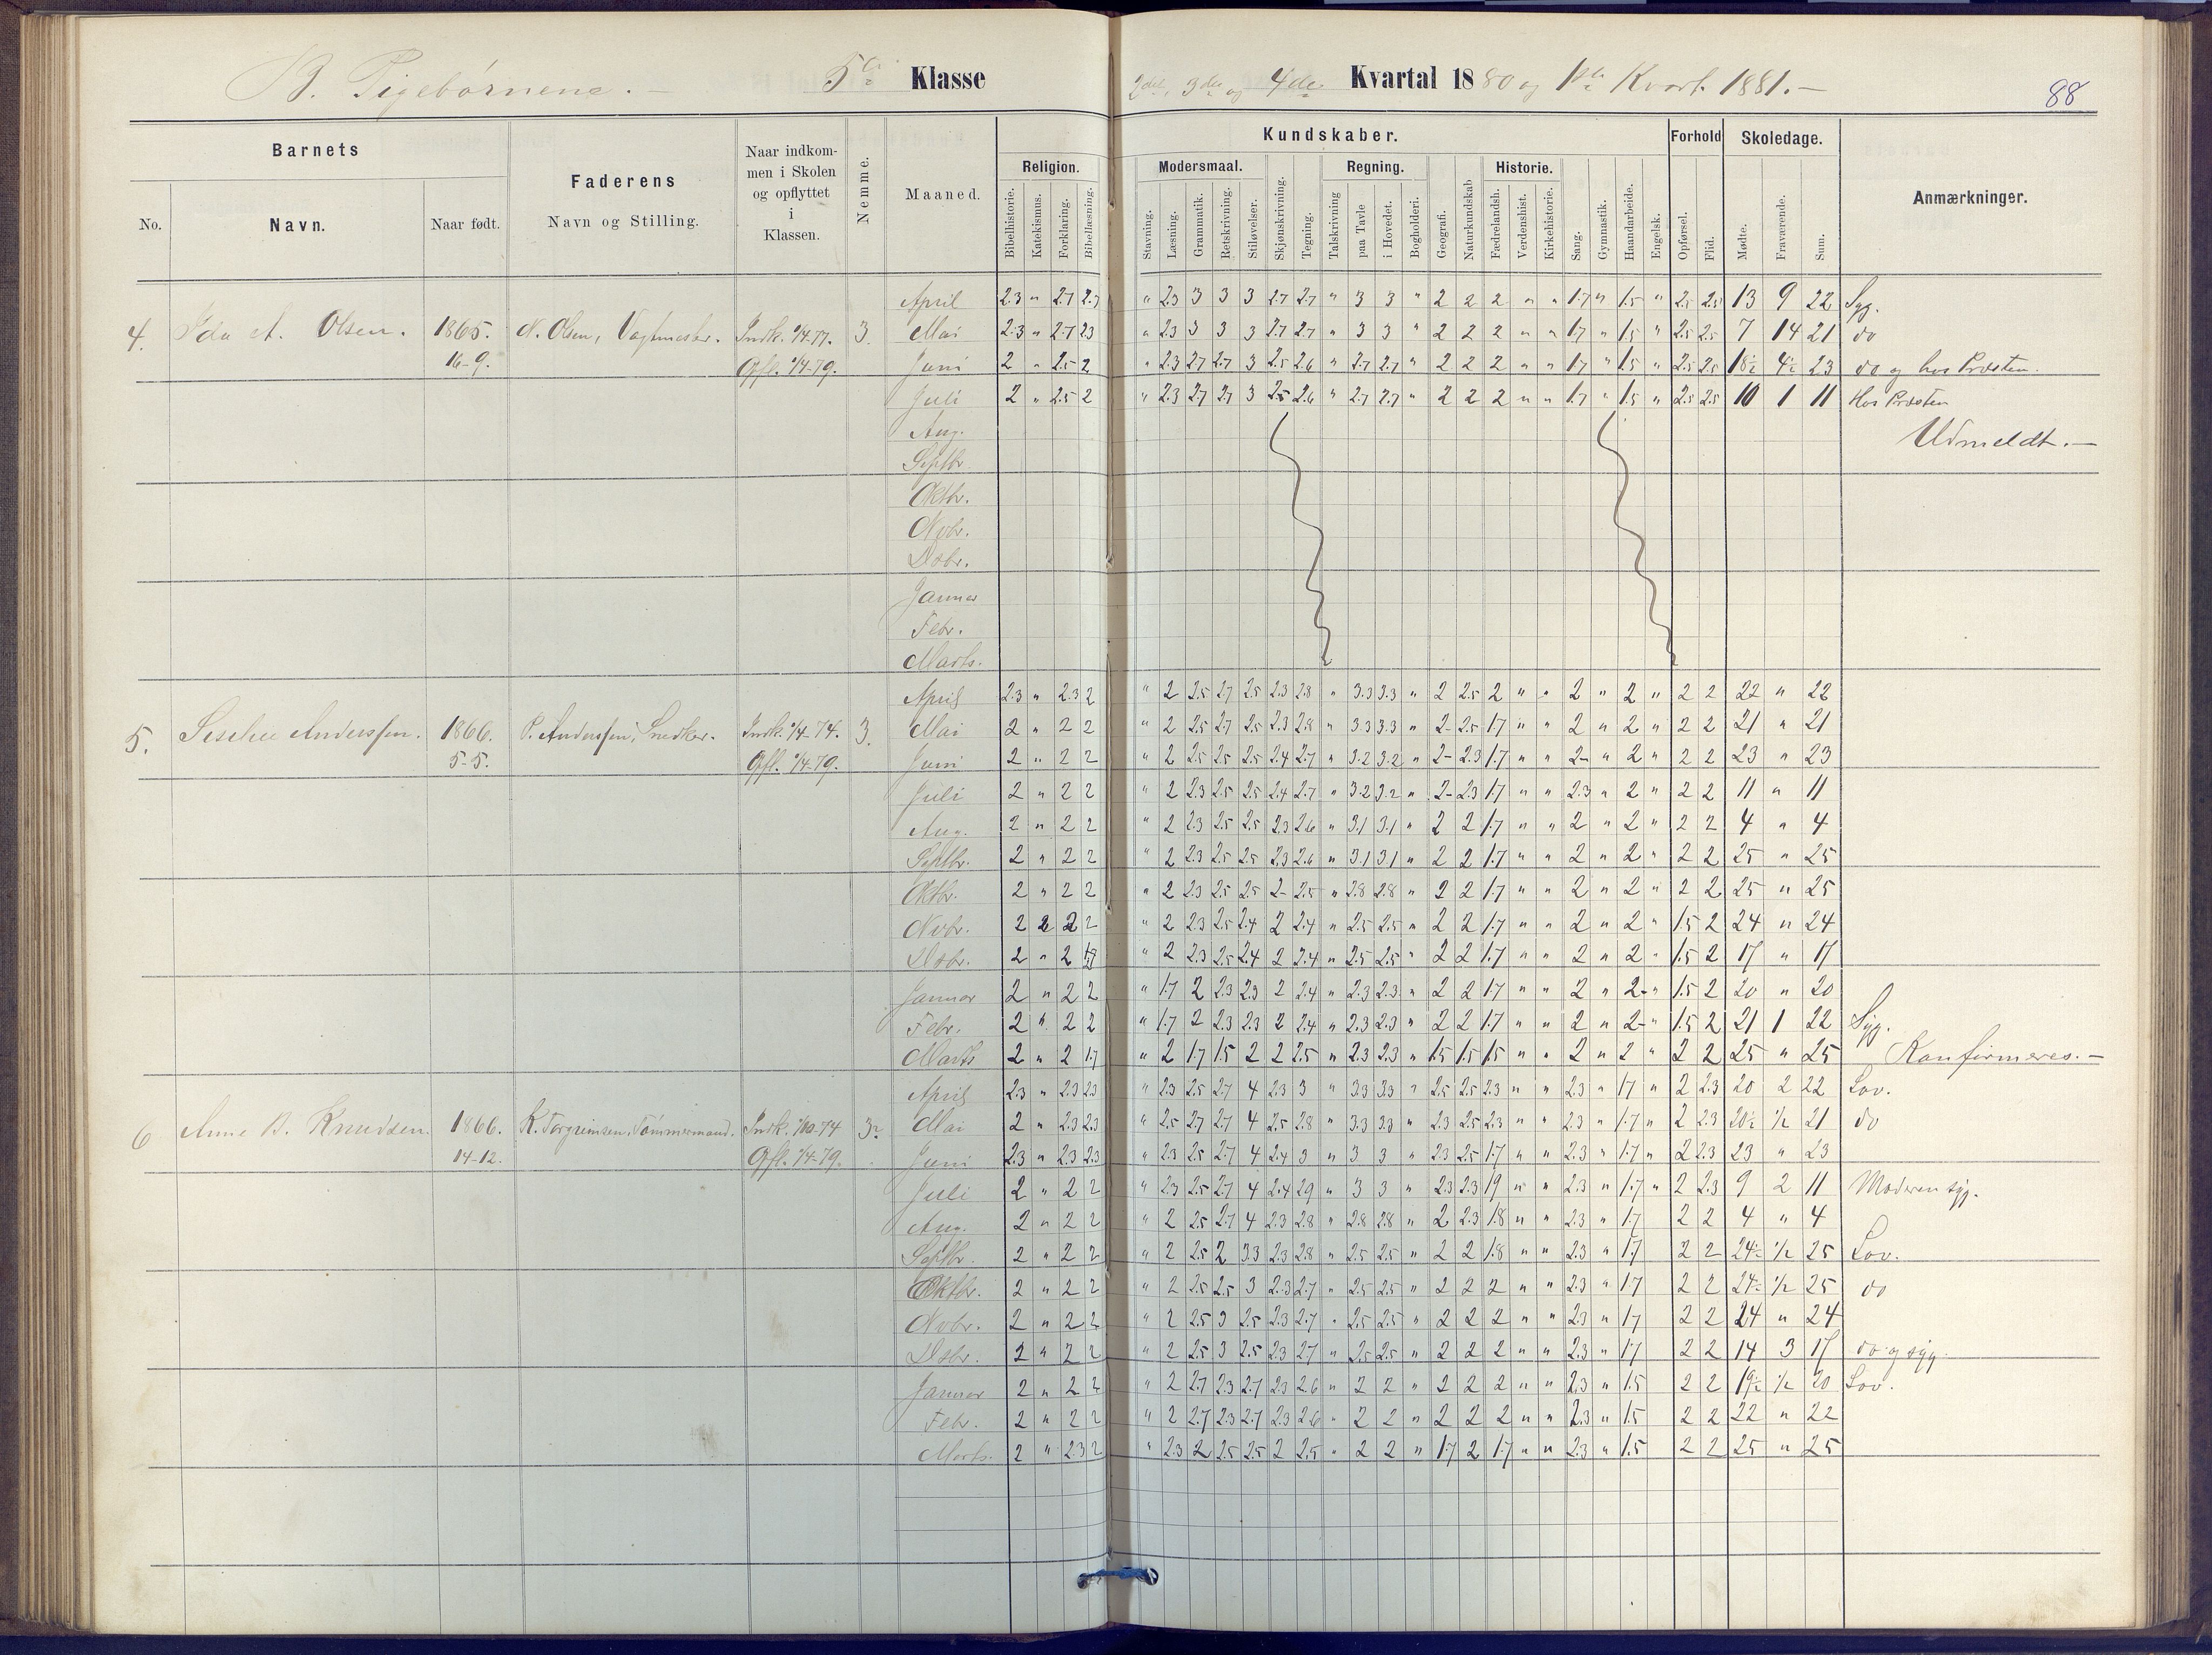 B. Pigebørnene. —
5te Klasse
2det, 3die og 4de Kvartal 1880 og 1ste Kvart. 1881. —
88
Barnets
No.
Navn.
Naar født.
Faderens
Navn og Stilling.
Naar indkom-
men i Skolen
og opflyttet
i
Klassen.
Nemme.
Maaned.
Kundskaber.
Religion.
Bibelhistorie.
Katekismus.
Forklaring.
Bibellæsning.
Modersmaal.
Stavning.
Læsning.
Grammatik.
Retskrivning.
Stiløvelser.
Skjønskrivning.
Tegning.
Regning.
Talskrivning
paa Tavle
i Hovedet.
Bogholderi.
Geografi.
Naturkundskab
Historie.
Fædrelandsh.
Verdenshist.
Kirkehistorie.
Sang.
Gymnastik.
Haandarbeide.
Engelsk.
Forhold
Opførsel.
Flid.
Skoledage.
Mødte.
Fraværende.
Sum.
Anmærkninger.
April 2.3 " 2.7 2.7 " 2.3 3 3 3 2.7 2.7 " 3 3 " 2 2 2 " " 1.7 " 1.5 " 2.5 2.5 13 9 22 Syg.
4. Ida A. Olsen. 1865. N. Olsen, Vagtmester. Indk. 1/4-77. 3. Mai 2.3 " 2.7 2.3 " 2.3 3 3 3 2.7 2.7 " 3 3 " 2 2 2 " " 1.7 " 1.5 " 2.5 2.5 7 14 21 do
16-9. Opfl. 1/4-79. Juni 2 " 2.5 2 " 2.3 2.7 2.7 3 2.5 2.6 " 2.7 2.7 " 2 2 2 " " 1.7 " 1.5 " 2.5 2.5 18½ 4½ 23 do og hos Præsten.
Juli 2 " 2.5 2 " 2.3 2.7 2.7 3 2.5 2.6 " 2.7 2.7 " 2 2 2 " " 1.7 " 1.5 " 2.5 2.5 10 1 11 Hos Præsten
Aug. Udmeldt. —
Septbr.
Oktbr.
Novbr.
Dsbr.
Januar
Febr.
Marts.
April 2.3 " 2.3 2 " 2 2.5 2.7 2.5 2.3 2.8 " 3.3 3.3 " 2 2.5 2 " " 2 " 2 " 2 2 22 " 22
5. Anderssen. 1866. P. Anderssen, Snedker. Indk. 1/4-74. 3. Mai 2 " 2 2 " 2 2.5 2.7 2.5 2.3 2.8 " 3.3 3.3 " 2- 2.5 1.7 " " 2 " 2 " 2 2 21 " 21
5-5. Opfl. 1/4-79. Juni 2 " 2 2 " 2 2.5 2.5 2.5 2.4 2.7 " 3.2 3.2 " 2- 2.3 1.7 " " 2- " 2 " 2 2 23 " 23
Juli 2 " 2 2 " 2 2.3 2.5 2.5 2.4 2.7 " 3.2 3.2 " 2- 2.3 1.7 " " 2.3 " 2 " 2 2 11 " 11
Aug. 2 " 2 2 " 2 2.3 2.5 2.5 2.3 2.6 " 3.1 3.1 " 2 2 1.7 " " 2 " 2 " 2 2 4 " 4
Septbr. 2 " 2 2 " 2 2.3 2.5 2.5 2.3 2.6 " 3.1 3.1 " 2 2 1.7 " " 2 " 2 " 2 2 25 " 25
Oktbr. 2 " 2 2 " 2 2.3 2.5 2.5 2- 2.5 " 2.8 2.8 " 2 2 1.7 " " 2 " 2 " 2 2 25 " 25
Novbr. 2 2 2 2 " 2 2.3 2.5 2.4 2 2.4 " 2.5 2.5 " 2 2 1.7 " " 2 " 2 " 1.5 2 24 " 24
Dsbr. 2 " 2 1.7 " 2 2.3 2.5 2.4 2 2.4 " 2.5 2.5 " 2 2 1.7 " " 2 " 2 " 1.5 2 17 " 17
Januar 2 " 2 2 " 1.7 2 2.3 2.3 2 2.4 " 2.3 2.3 " 2 2 1.7 " " 2 " 2- " 1.5 2 20 " 20
Febr. 2 " 2 2 " 1.7 2 2.3 2.3 2 2.4 " 2.3 2.3 " 2 2 1.7 " " 2 " 2- " 1.5 2 21 1 22 Syg.
Marts 2 " 2 1.7 " 2 1.7 1.5 2 2 2.5 " 2.3 2.3 " 1.5 1.5 1.5 " " 2 " 2 " 2 2 25 " 25 Konfirmeres. —
April 2.3 " 2.3 2.3 " 2.3 2.5 2.7 4 2.3 3 " 3.3 3.3 " 2.5 2.5 2.3 " " 2.3 " 1.7 " 2 2.3 20 2 22 Lov.
6 Anne B. Knudsen. 1866. K. Torgrimsen, Tømmermand. Indk. 1/10-74 3½ Mai 2 " 2.3 2.3 " 2.5 2.7 2.7 4 2.5 2.8 " 3.3 3.3 " 2.3 2.5 2.3 " " 2.3 " 1.7 " 2 2.3 20½ ½ 21 do
14-12. Opfl. 1/4-79. Juni 2.3 " 2.3 2.3 " 2.3 2.5 2.7 4 2.4 3 " 3 3 " 2.3 2.5 1.7 " " 2.3 " 1.7 " 2 2.3 23 " 23
Juli 2 " 2 2 " 2.3 2.5 2.7 4 2.4 2.9 " 3 3 " 2.3 2.3 1.9 " " 2.3 " 1.7 " 2 2.3 9 2 11 Moderen syg.
Aug. 2 " 2 2 " 2 2.5 2.7 4 2.3 2.8 " 2.8 2.8 " 2 2.3 1.8 " " 2.3 " 1.7 2 2 4 " 4
Septbr. 2 " 2 2 " 2 2.5 2 3.3 2.3 2.8 " 2.5 2.5 " 2 2 1.8 " " 2.3 " 1.7 2 2 24½ ½ 25 Lov.
Oktbr. 2 " 2 2 " 2 2.5 2.5 3 2.3 2.7 " 2.5 2.5 " 2 2 2 " " 2.3 " 1.7 2 2 24½ ½ 25 do
Novbr. 2 " 2 2 " 2 2.5 3 2.5 2.3 2.7 " 2.5 2.5 " 2 2 2 " " 2.3 " 1.7 2 2 24 " 24
Dsbr. 2 " 2 2 " 2 2.5 3 2.5 2.3 2.7 " 2.5 2.5 " 2 2 2 " " 2.3 " 1.7 2 2 14 3 17 do og syg.
Januar 2 " 2 2 " 2 2.7 2.3 2.7 2.3 2.6 " 2 2 " 2 2 2 " " 2.3 " 1.5 2 2 19½ ½ 20 Lov.
Febr. 2 " 2 2 " 2 2.7 2.3 2.7 2.3 2.6 " 2 2 " 2 2 2 " " 2.3 " 1.5 2 2 22 " 22
Marts. 2 " 2.3 2 " 2.3 2 2.5 2.5 2 2.5 " 2 2 " 1.7 2 1.7 " " 2.3 " 1.5 2 2 25 " 25